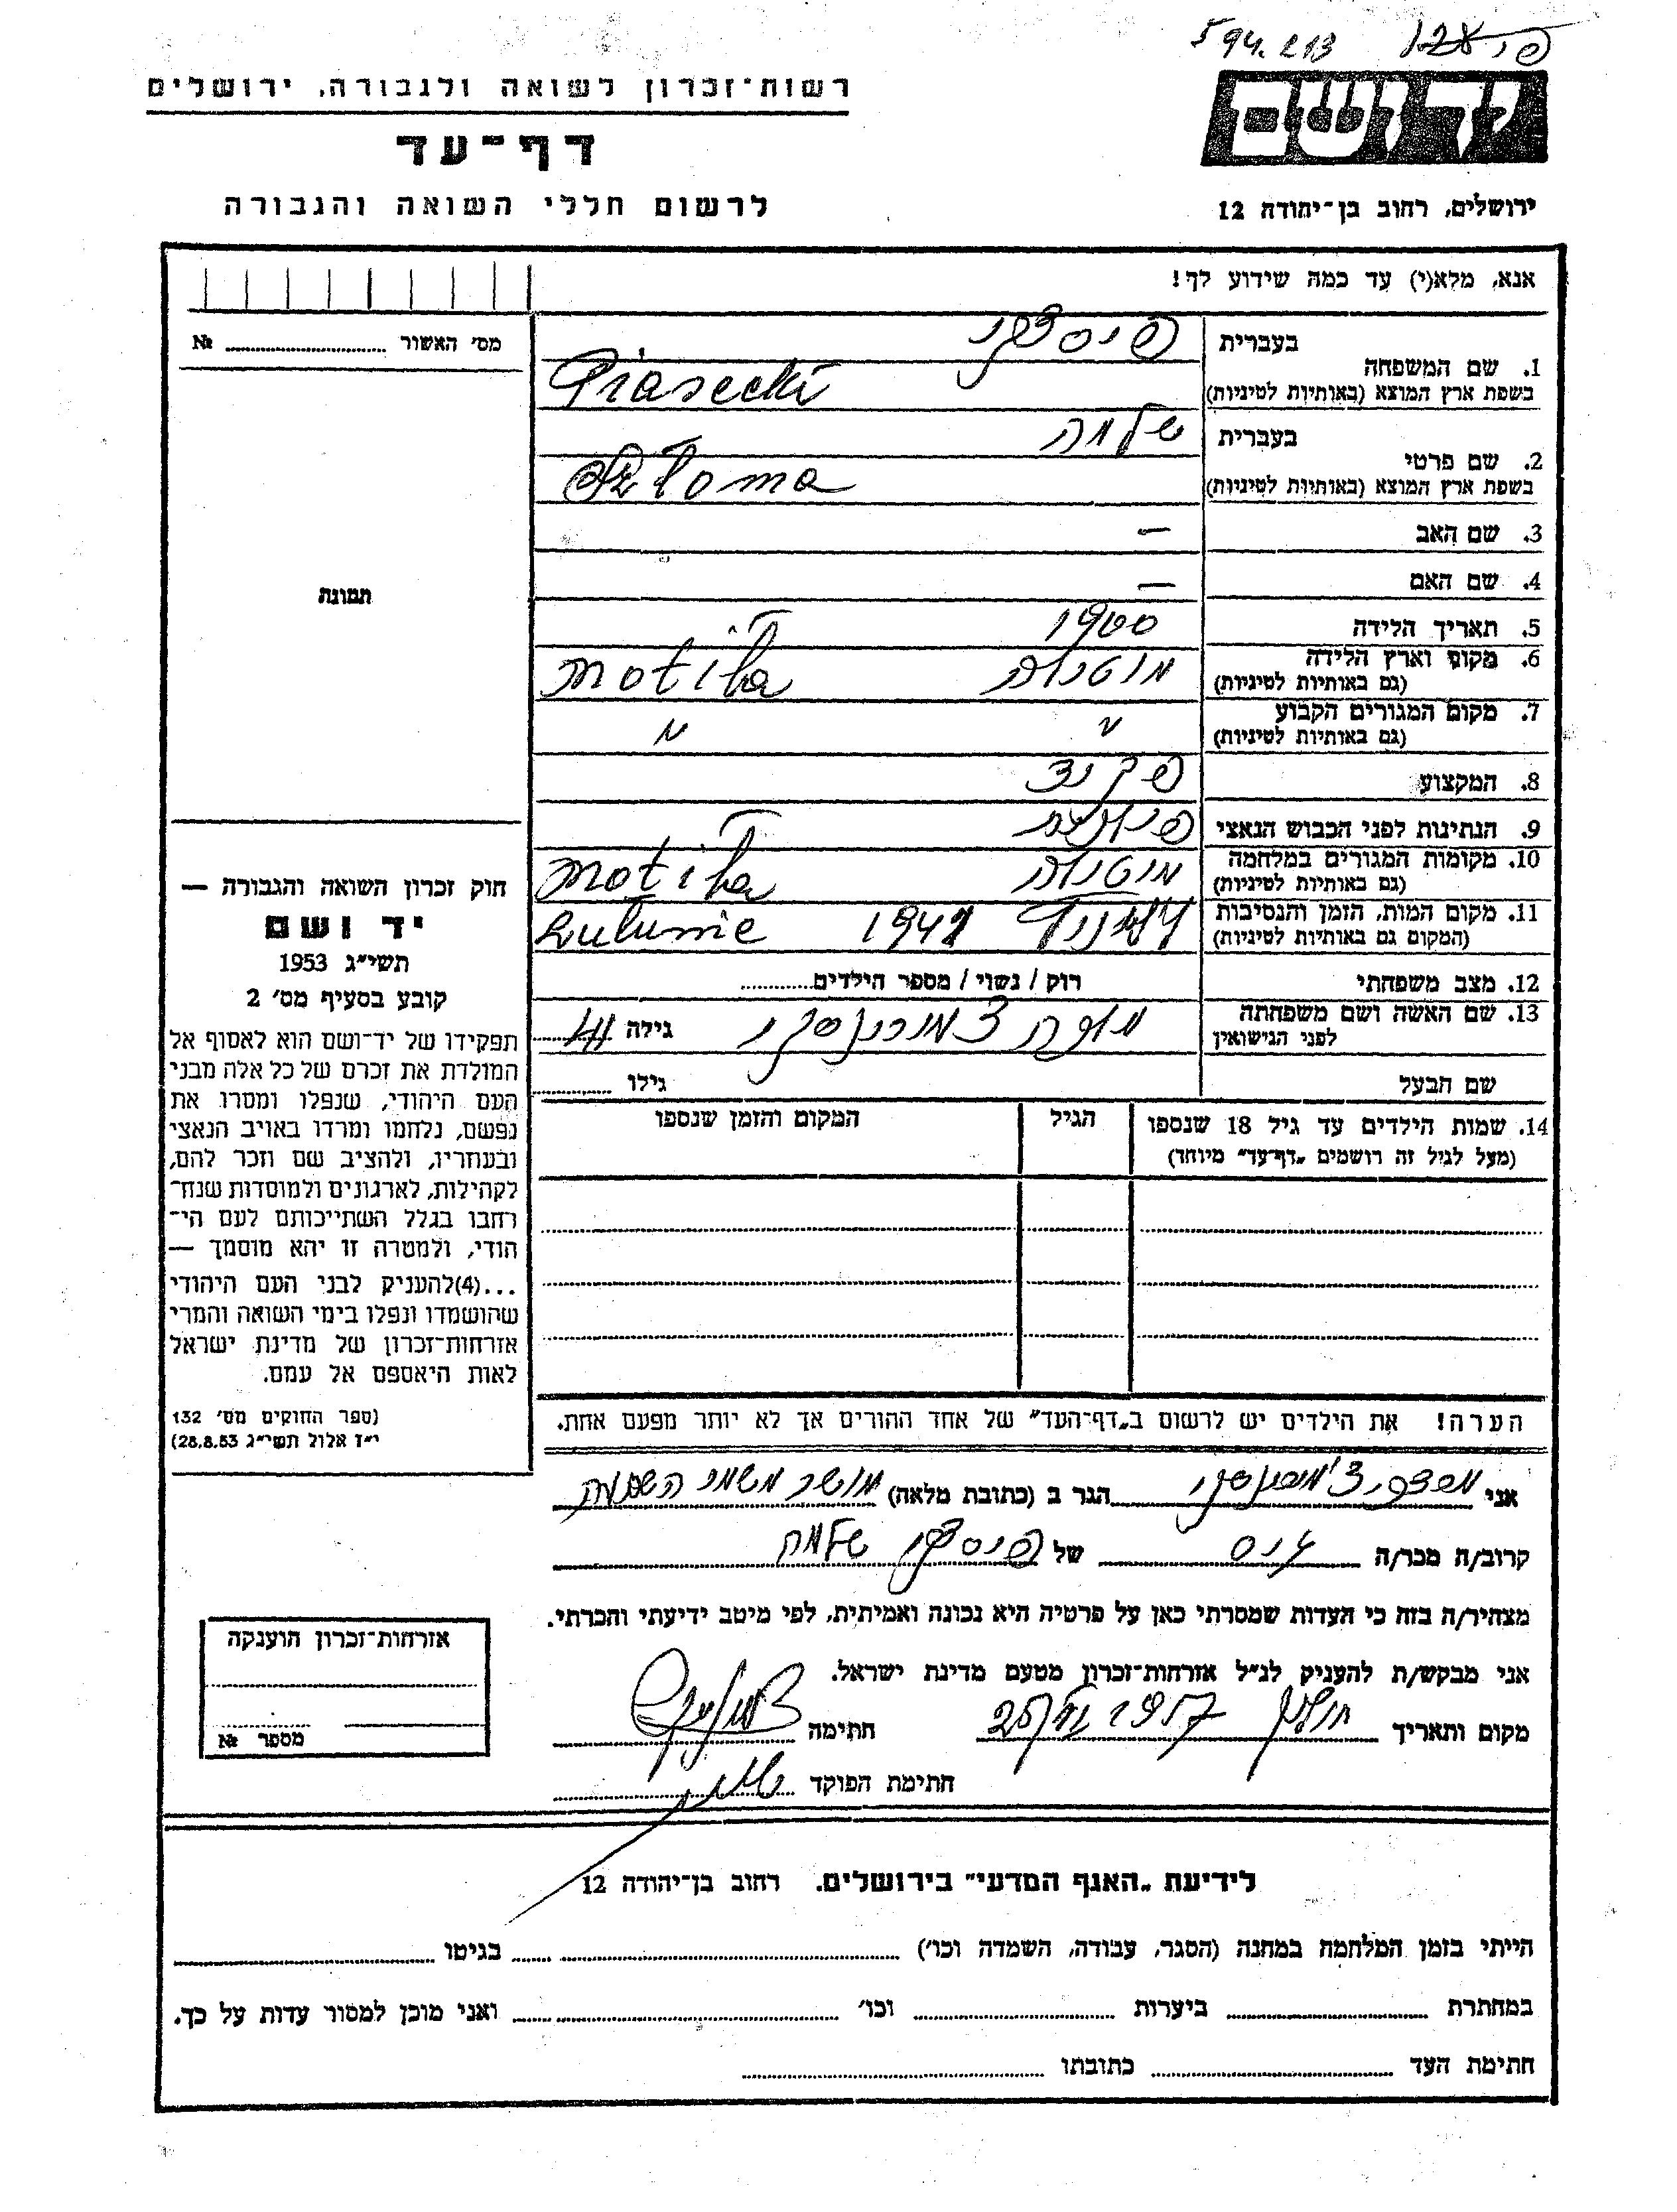 594.213
רשות־זכרון לשואה ולגבורה, ירושלים
דף־עד
לרשום חללי השואה והגבורה
יד ושם
ירושלים, רחוב בן־יהודה 12
אנא, מלא(י) עד כמה שידוע לך!
מס׳ האשור №
תמונה
1. שם המשפחה
בעברית פיסצקי
בשפת ארץ המוצא (באותיות לטיניות) Piasecki
2. שם פרטי
בעברית שלמה
בשפת ארץ המוצא (באותיות לטיניות) Szloma
3. שם האב —
4. שם האם —
5. תאריך הלידה 1900
6. מקום וארץ הלידה
(גם באותיות לטיניות) Motila
7. מקום המגורים הקבוע
(גם באותיות לטיניות) " "
8. המקצוע
9. הנתינות לפני הכבוש הנאצי
10. מקומות המגורים במלחמה
(גם באותיות לטיניות) Motila
11. מקום המות, הזמן והנסיבות
(המקום גם באותיות לטיניות) 1941
12. מצב משפחתי רוק / נשוי / מספר הילדים
13. שם האשה ושם משפחתה
לפני הנישואין גילה 41
שם הבעל גילו
14. שמות הילדים עד גיל 18 שנספו הגיל המקום והזמן שנספו
(מעל לגיל זה רושמים „דף־עד" מיוחד)
הערה! את הילדים יש לרשום ב„דף־העד" של אחד ההורים אך לא יותר מפעם אחת.
חוק זכרון השואה והגבורה —
יד ושם
תשי״ג 1953
קובע בסעיף מס׳ 2
תפקידו של יד־ושם הוא לאסוף אל
המולדת את זכרם של כל אלה מבני
העם היהודי, שנפלו ומסרו את
נפשם, נלחמו ומרדו באויב הנאצי
ובעוזריו, ולהציב שם וזכר להם,
לקהילות, לארגונים ולמוסדות שנח־
רחבו בגלל השתייכותם לעם הי־
הודי, ולמטרה זו יהא מוסמך —
...(4)להעניק לבני העם היהודי
שהושמדו ונפלו בימי השואה והמרי
אזרחות־זכרון של מדינת ישראל
לאות היאספם אל עמם.
(ספר החוקים מס׳ 132
י״ז אלול תשי״ג 28.8.53)
אני הגר ב (כתובת מלאה) מושב משמר השבעה
קרוב/ה מכר/ה גיס של פיסצקי שלמה
מצהיר/ה בזה כי העדות שמסרתי כאן על פרטיה היא נכונה ואמיתית, לפי מיטב ידיעתי והכרתי.
אני מבקש/ת להעניק לנ״ל אזרחות־זכרון מטעם מדינת ישראל.
מקום ותאריך 1957 חתימה
חתימת הפוקד
אזרחות־זכרון הוענקה
מספר №
לידיעת „האגף המדעי" בירושלים. רחוב בן־יהודה 12
הייתי בזמן המלחמה במחנה (הסגר, עבודה, השמדה וכו׳) בגיטו
במחתרת ביערות וכו׳ ואני מוכן למסור עדות על כך.
חתימת העד כתובתו